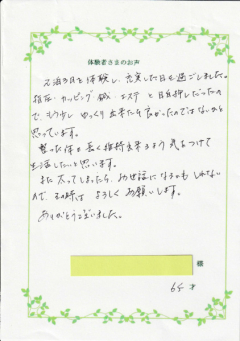 体験者さまのお声
を体験し、充実した日を過ごしました。
指圧、カッピング、鍼、エステと目白押しだったの
で、もう少しゆっくり出来たら良かったのではないかと
思っています。
整った体を長く維持出来るよう気をつけて
生活したいと思います。
また太ってしまったら、お世話になるかもしれない
ので、その時はよろしくお願いします。
ありがとうございました。
様
65才